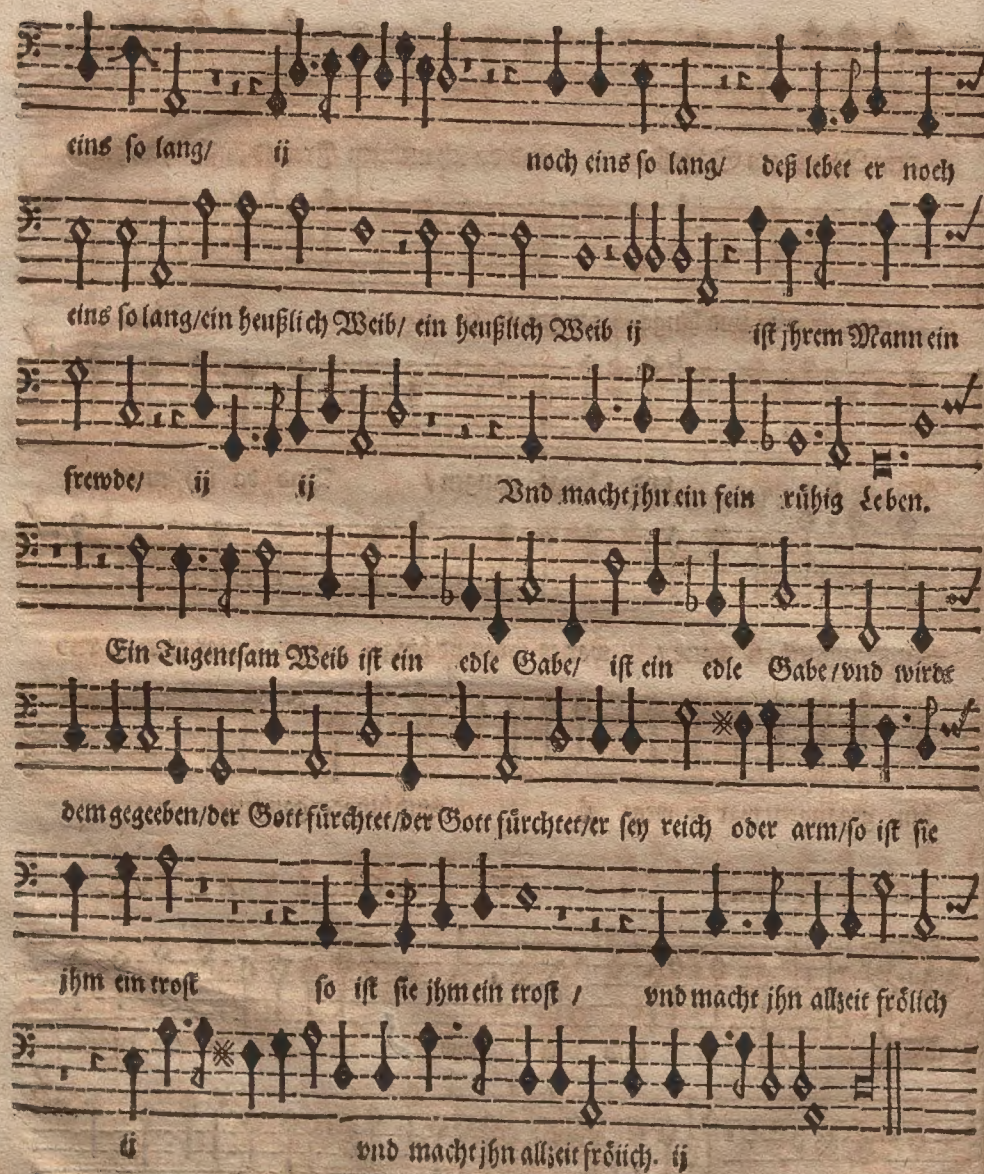 eins so lang/ ij noch eins so lang/ deß lebet er noch
eins so lang/ein heußlich Weib/ ein heußlich Weib ij ist jhrem Mann ein
frewde/ ij ij Vnd macht jhn ein fein rühig Leben.
Ein Tugentsam Weib ist ein edle Gabe/ ist ein edle Gabe/vnd wirds
dem gegeeben/der Gott fürchtet/der Gott fürchtet/er sey reich oder arm/so ist sie
jhm ein trost so ist sie jhm ein trost / vnd macht jhn allzeit frölich
ij vnd macht jhn allzeit frölich. ij